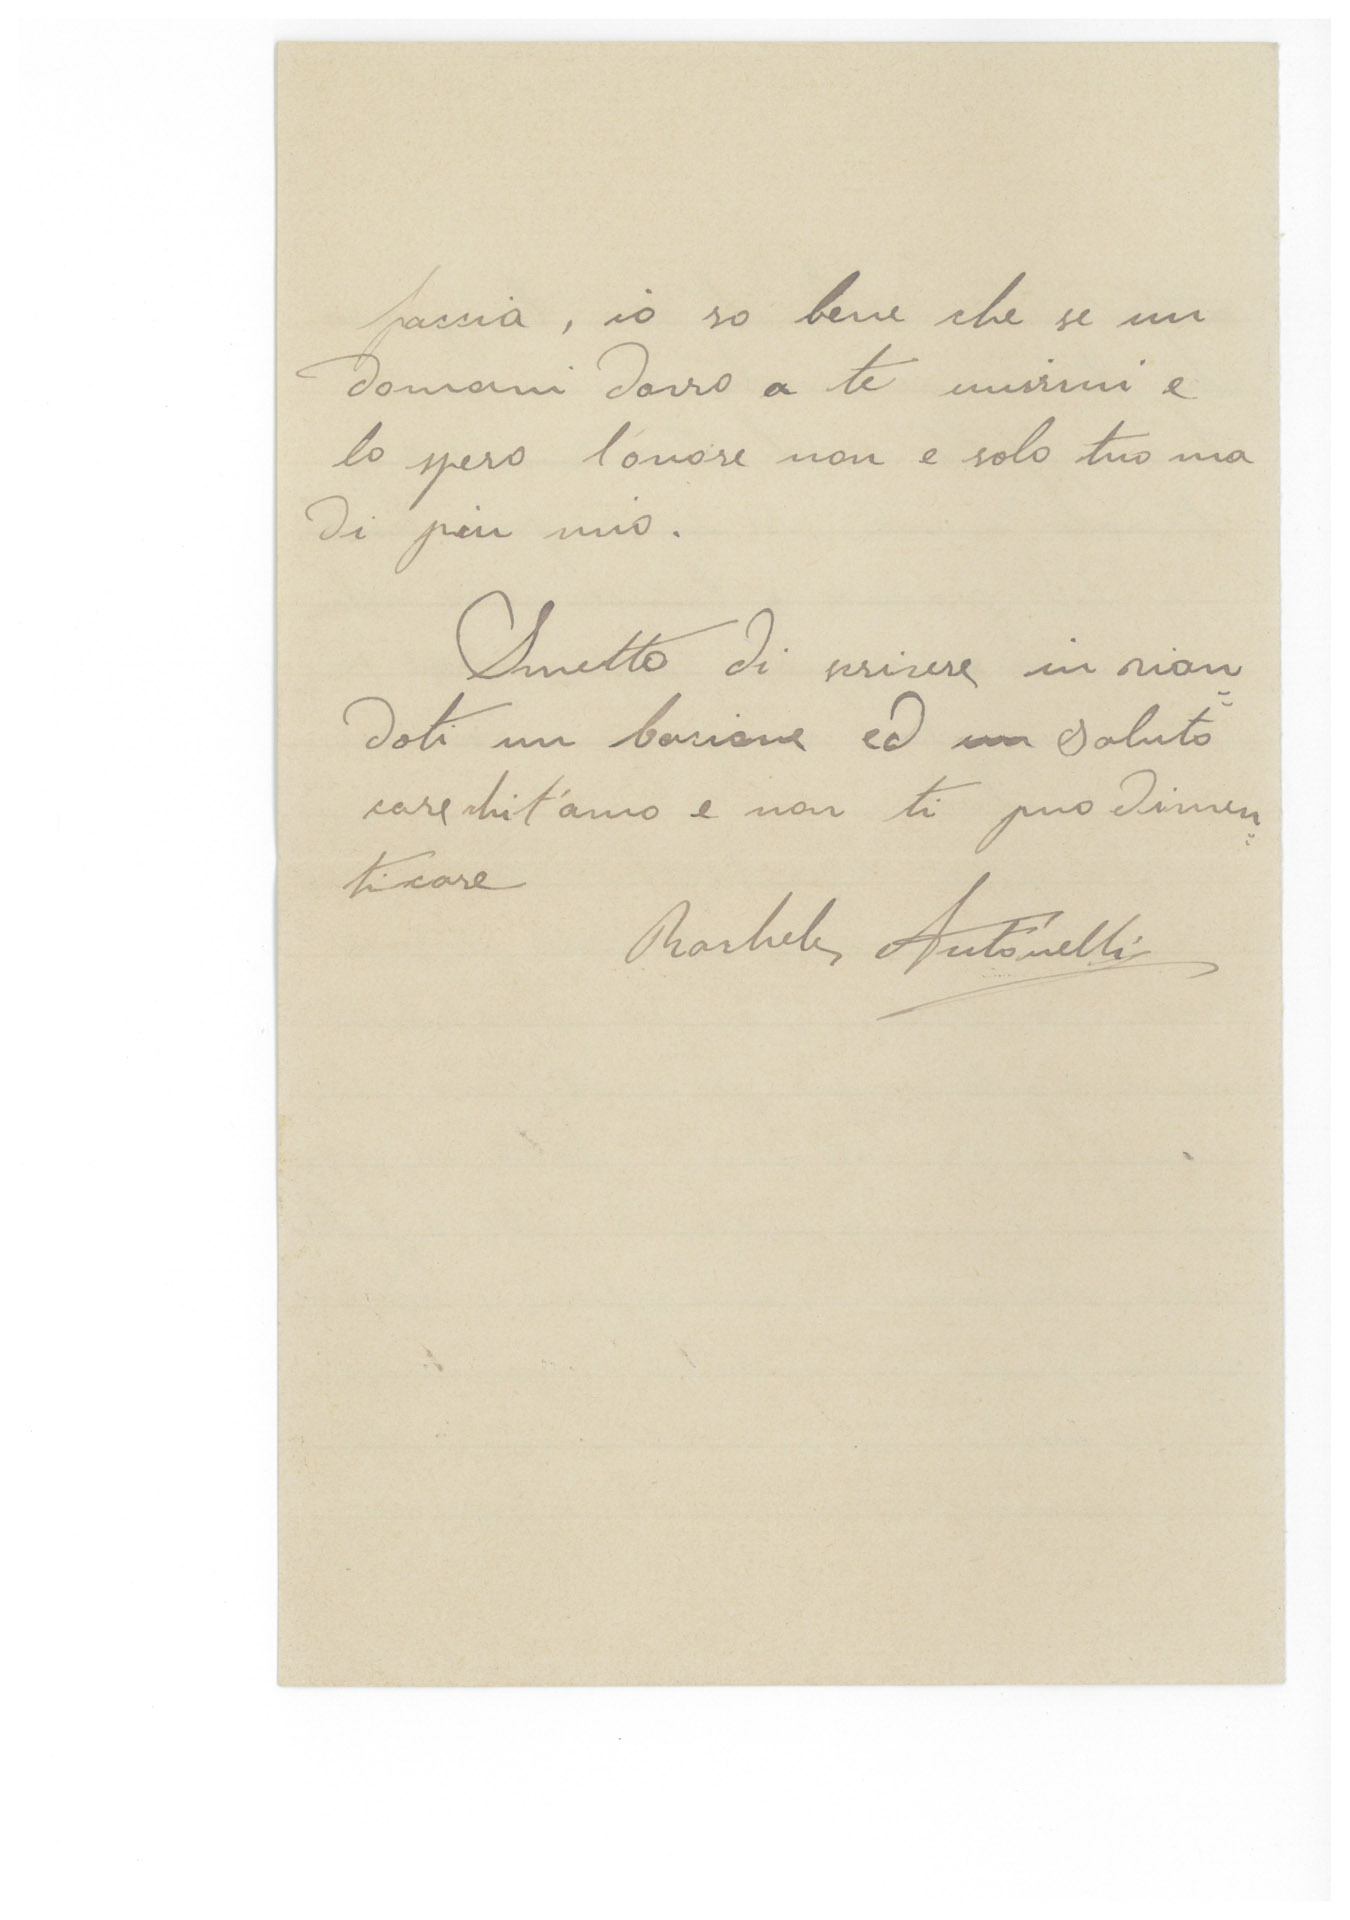 faccia, io so bene che se un
domani dovro a te unirmi e
lo spero l'onore non e solo tuo ma
di piu mio.
Smetto di scrivere in vian=
doti un bacione ed un saluto
care chi t'amo e non ti puo dimen=
ticare
Rachele Antonelli